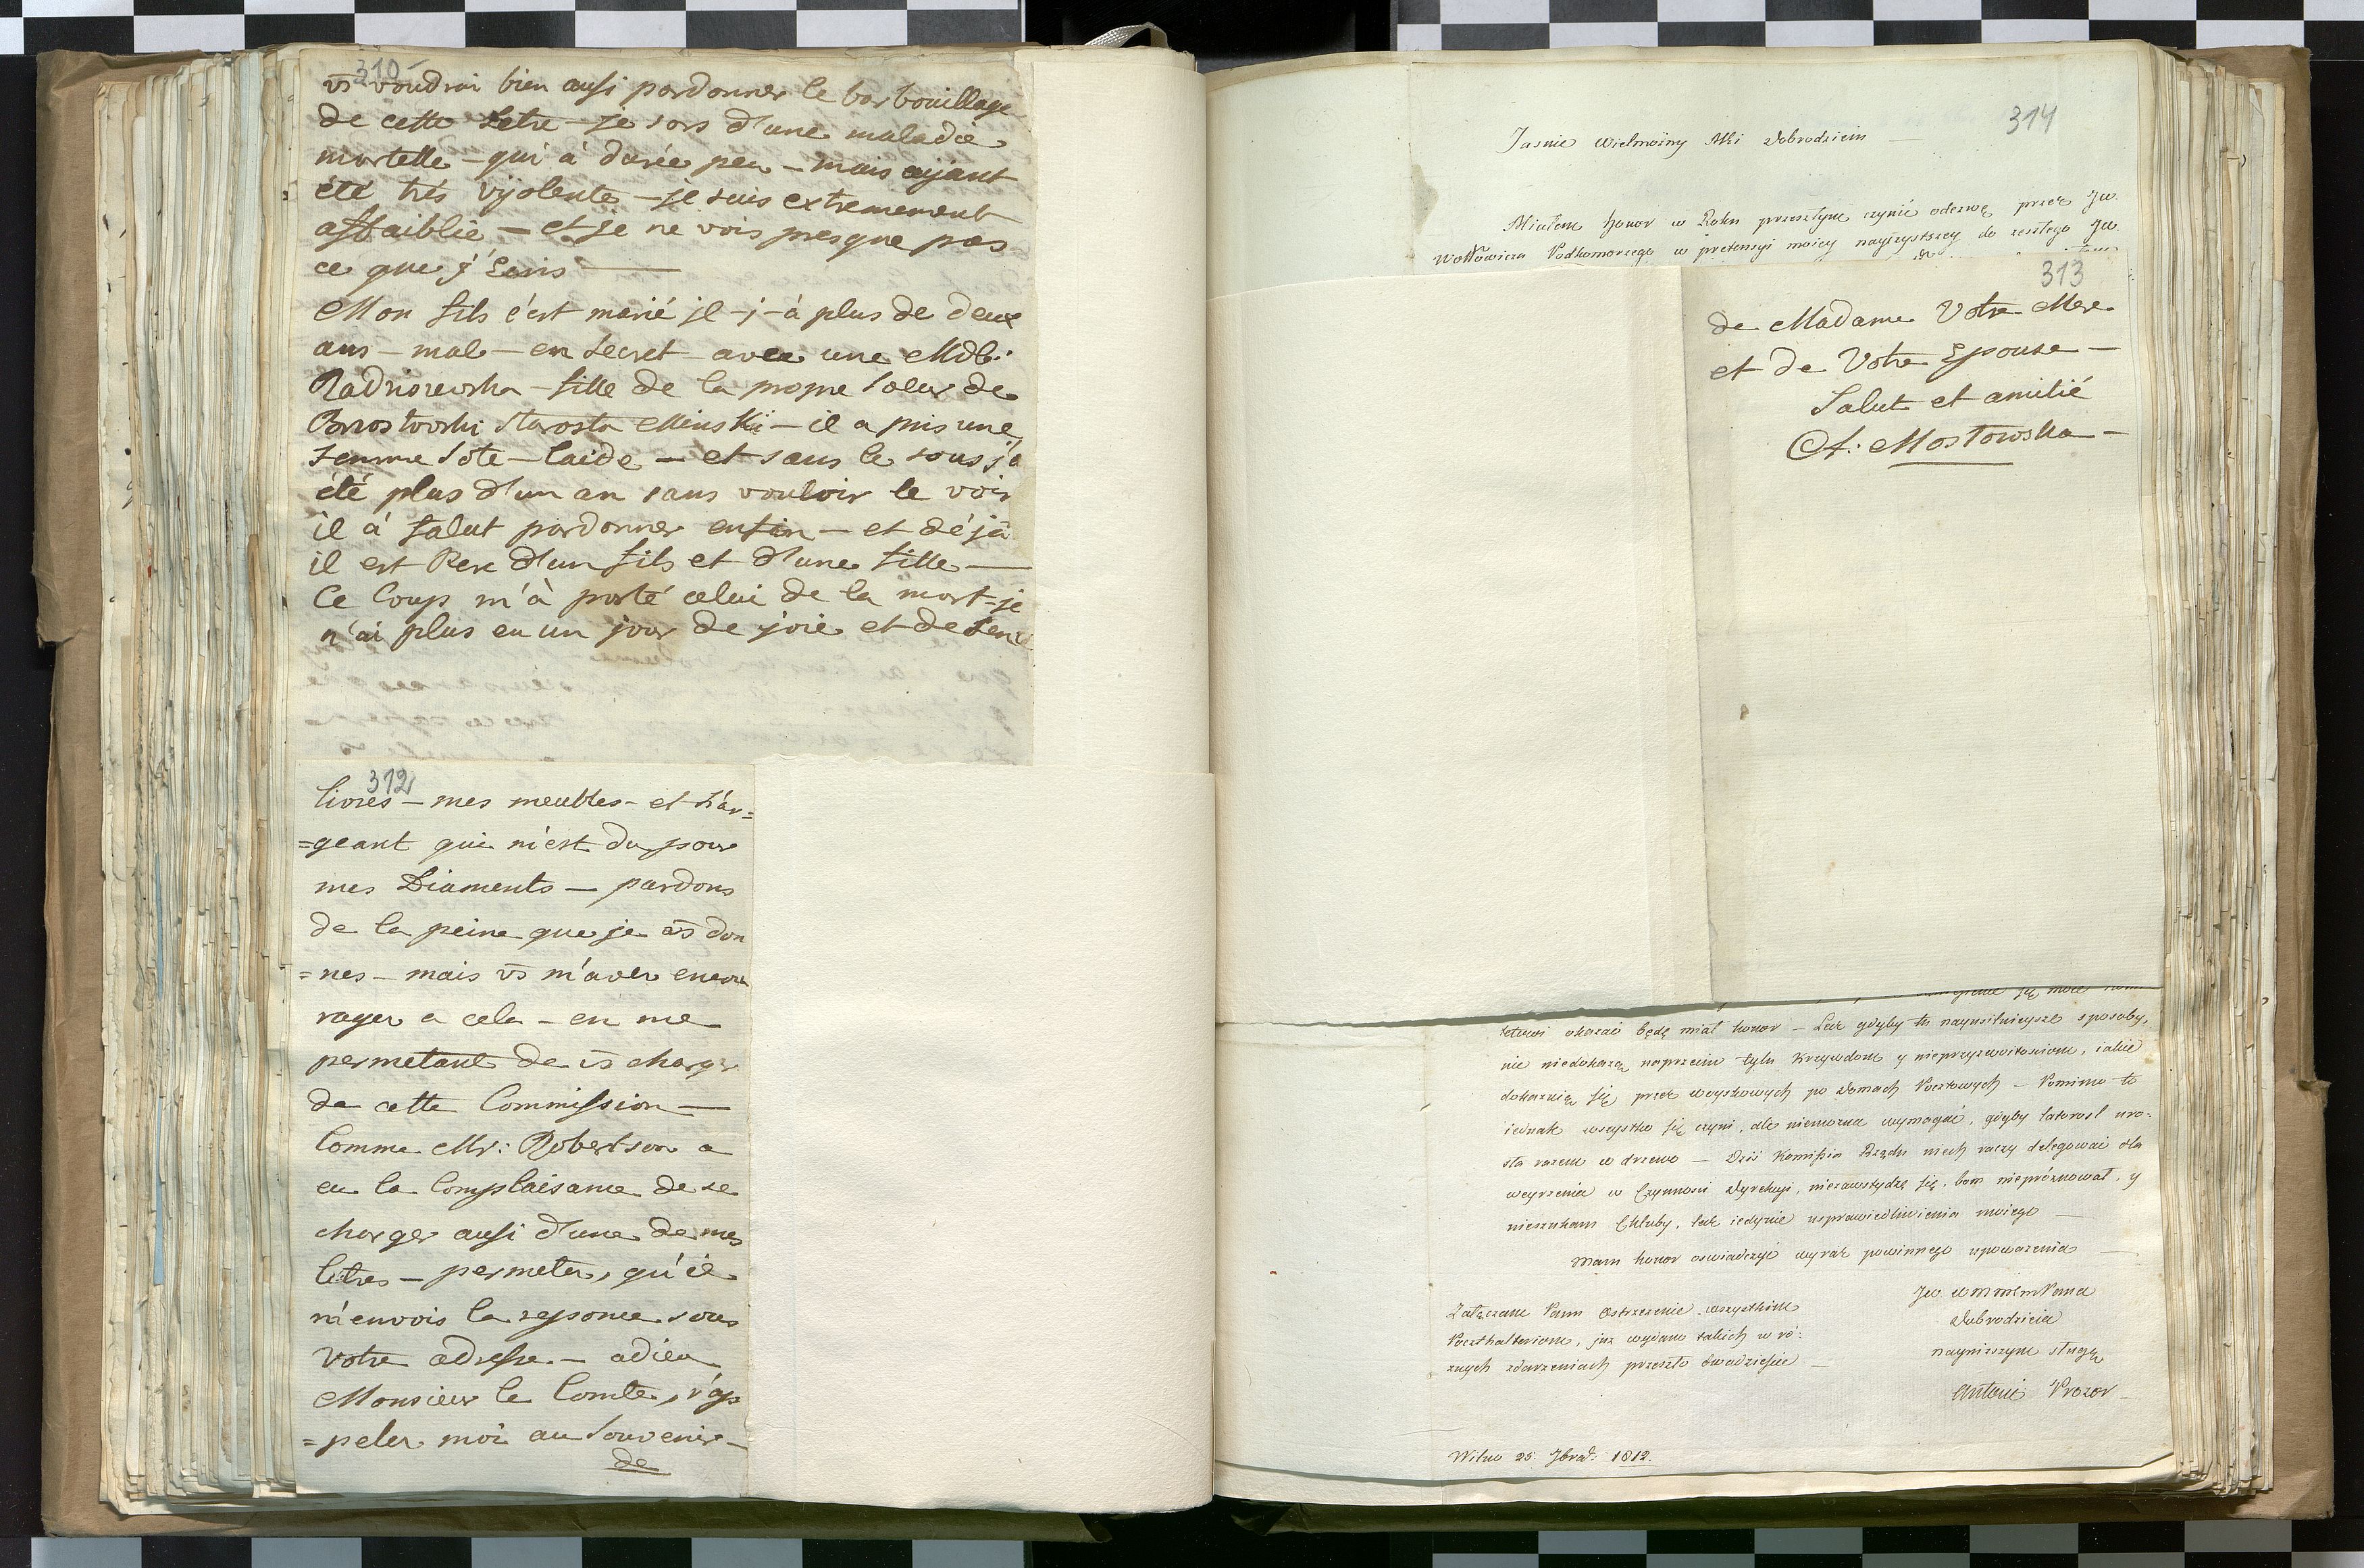 310
vs voudrai bien ausi pardonner le barbouillage
de cette Letre – je sors d'une maladie
mortelle – qui à durée peu – mais aÿant
été trés vÿolente – je suis extremement
affaiblie – et je ne vois presque pas
ce que j'Ecris –
Mon fils c'est marié jl-j-à plus de deux
ans – mal – en secret – avec une Mdlle:
fille de la propre Soeur de
Starosta Minski – il a pris une
femme sote – laide – et sans le sous j'a
été plus d'un an sans vouloir le voir
il à falut pardonner enfin – et déjà
il est Pere d'un fils et d'une fille –
Ce Coup m'à porté celui de la mort – je
n'ai plus eu un jour de joie et de
312
livres – mes meubles – et l'ar=
=geant qui m'est du pour
mes Diaments – pardons
de la peine que je vs don
=nes – mais vs m'aver encou
rager a cela – en me
permetant de vs charger
de cette Commission –
Comme Mr: Robertson a
eu la Complaisance de se
charger ausi d'une de mes
letres – permeter, qu'il
m'envois la reponce sous
Votre adresse. – adieu
Monsieur le Comte, r'ap
=peler moi au Souvenir –
de
314
Jasnie Wielmożny Mci Dobrodzieiu
Miałem honor w Roku przeszłym czynić odezwę przez Jw.
Wołłowicza Podkomorzego w pretensyi moiey nayczystszey do zeszłego Jw
313
de Madame Votre Mere
et de Votre Epouse –
Salut et amitié
A: Mostowska –
okazać będę miał honor – Lecz gdyby te nayusilnieysze sposoby,
nic niedokażą naprzeciw tylu krzywdom y nieprzyzwoitosciom, iakie
dokazuią się przez woyskowych po domach Pocztowych – Pomimo to
iednak wszystko się czyni, ale niemożna wymagać, gdyby latorosl uro=
sła razem w drzewo – Dziś Komissia Rządu niech raczy delegować dla
weyrzenia w Czynnosci Dyrekcyi, niezawstydzę się, bom niepróżnował, y
nieszukam Chluby, lecz iedynie usprawiedliwienia moiego –
Mam honor oswiadczyć wyraz powinnego upoważenia –
Jw Pana
Dobrodzieia
nayniższym sługą
Antoni Prozor
Załączam Panu Ostrzeżenie wszystkim
Poczthalterom, już wydano takich w ró=
żnych zdarzeniach przeszło dwadzieście –
Wilno 25. 1812.